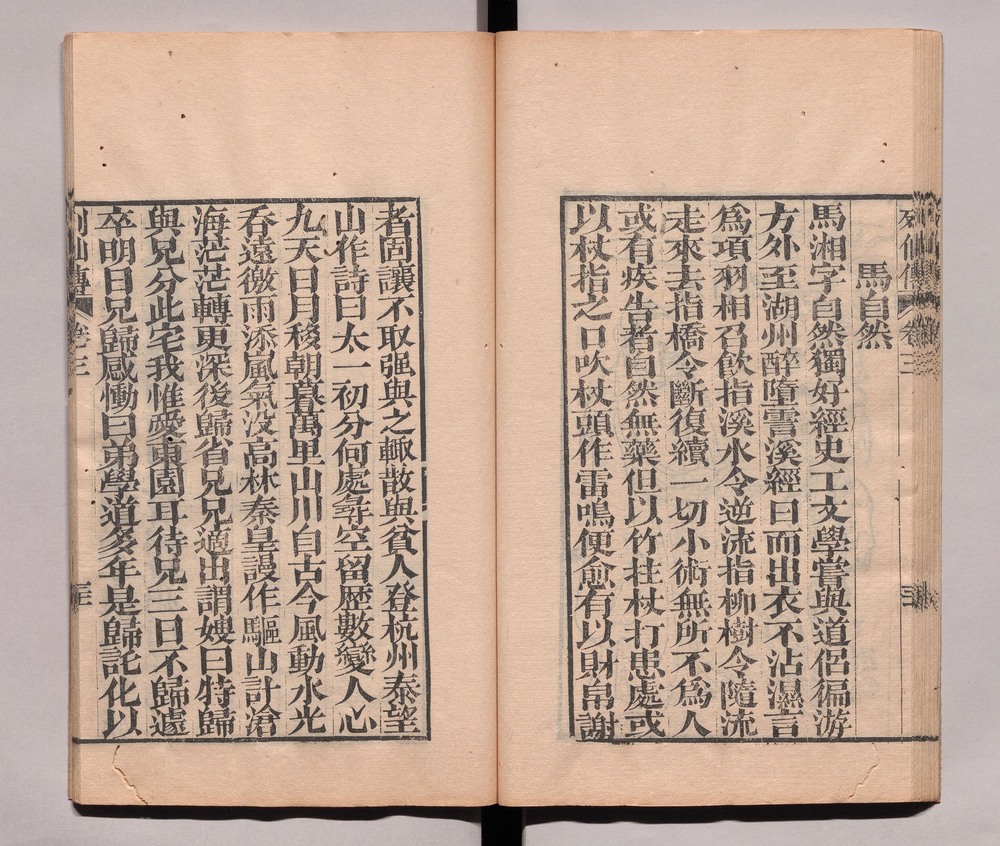 列仙傳 卷三
馬自然
馬湘字自然獨好經史工文學嘗與道侶徧游
方外至湖州醉墮霅溪經日而出衣不沾濕言
爲項羽相召飲指溪水令逆流指柳樹令隨流
走來去指橋令斷復續一切小術無所不爲人
或有疾告者自然無藥但以竹拄杖打患處或
以杖指之口吹杖頭作雷鳴便愈有以財帛謝
者固讓不取强與之輙散與貧人登杭州秦望
山作詩曰太一初分何處尋空留歷數變人心
九天日月移朝暮萬里山川自古今風動水光
吞遠徼雨添嵐氣没高林秦皇謾作驅山計滄
海茫茫轉更深後歸省兄兄適出謂嫂曰特歸
與兄分此宅我惟愛東園耳待兄三日不歸遽
卒明日兄歸感慟曰弟學道多年是歸託化以
列仙傳 卷三